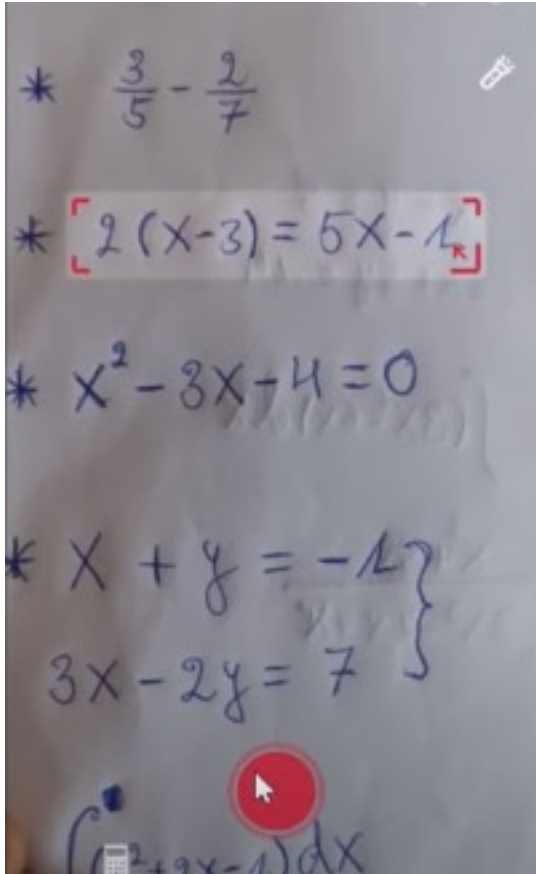 * 3/5 - 2/7
* 2(x-3) = 5x-1
* x² - 3x - 4 = 0
* x + y = -1 }
3x - 2y = 7
²+2x-1)dx